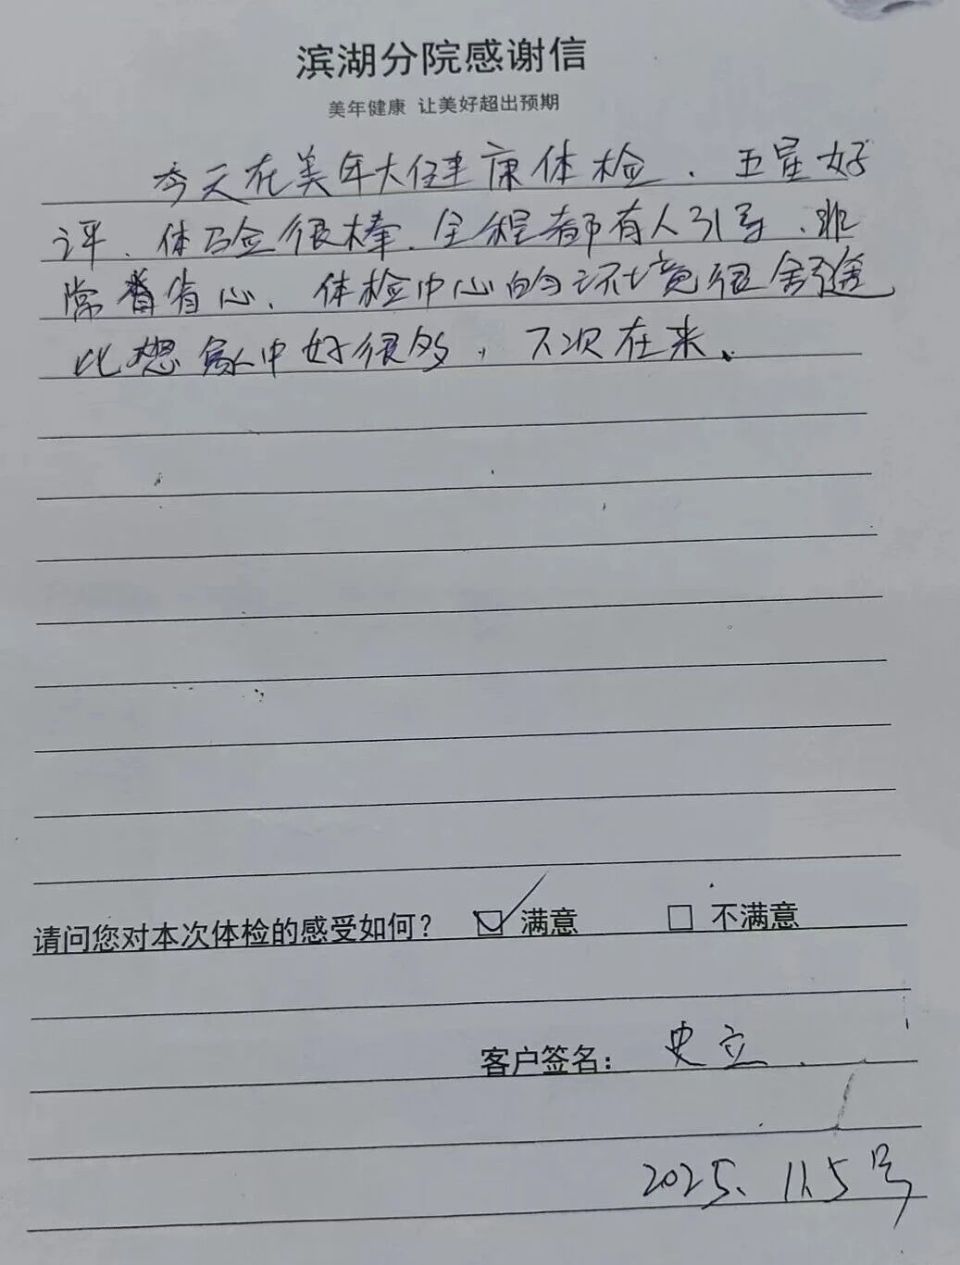 滨湖分院感谢信
美年健康 让美好超出预期
今天在美年大健康体检、五星好
评、体验很棒、全程都有人引导、非
常省心、体检中心的环境很舒适
比想象中好很多，下次在来、
请问您对本次体检的感受如何？ 满意 不满意
客户签名： 史立
2025、11、5号